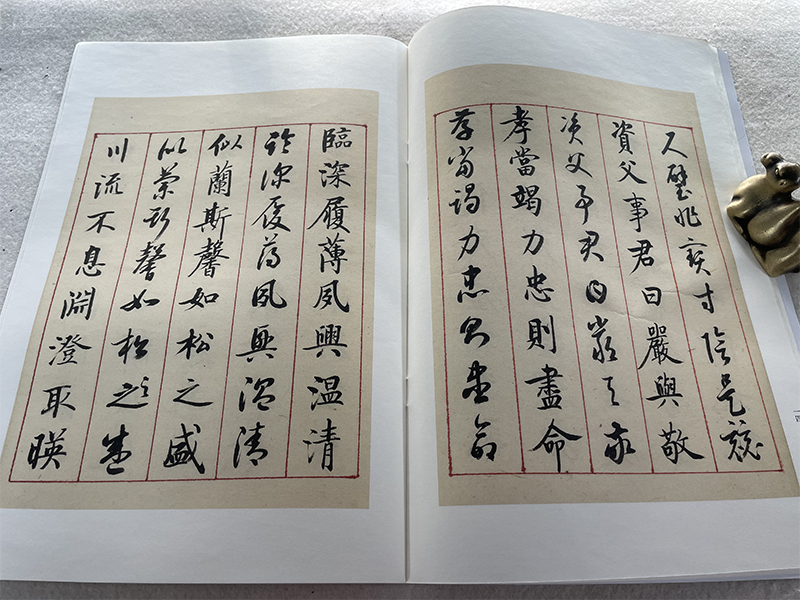 尺璧非寶寸陰是競
資父事君曰嚴與敬
資父事君曰嚴與敬
孝當竭力忠則盡命
孝當竭力忠則盡命
臨深履薄夙興温清
臨深履薄夙興温清
似蘭斯馨如松之盛
似蘭斯馨如松之盛
川流不息淵澄取暎